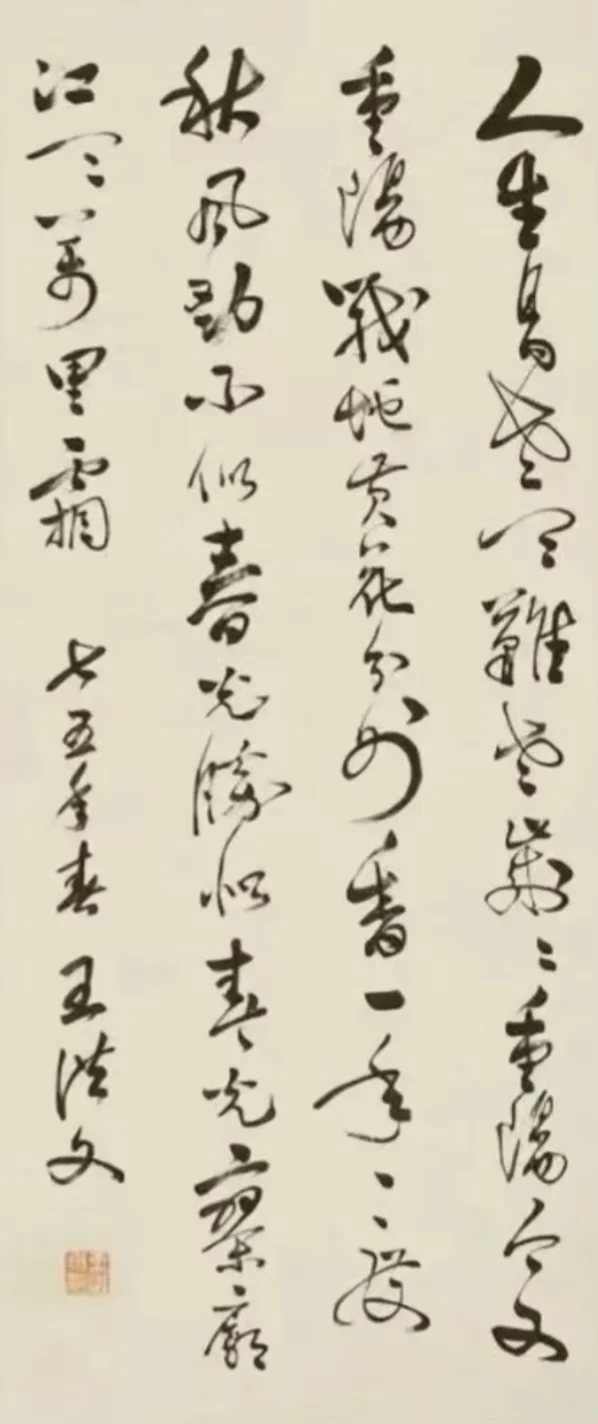 人生易老天難老歲々重陽今又
重陽戰地黄花分外香一年一度
秋風勁不似春光勝似春光寥廓
江天萬里霜 七五年春 王洪文